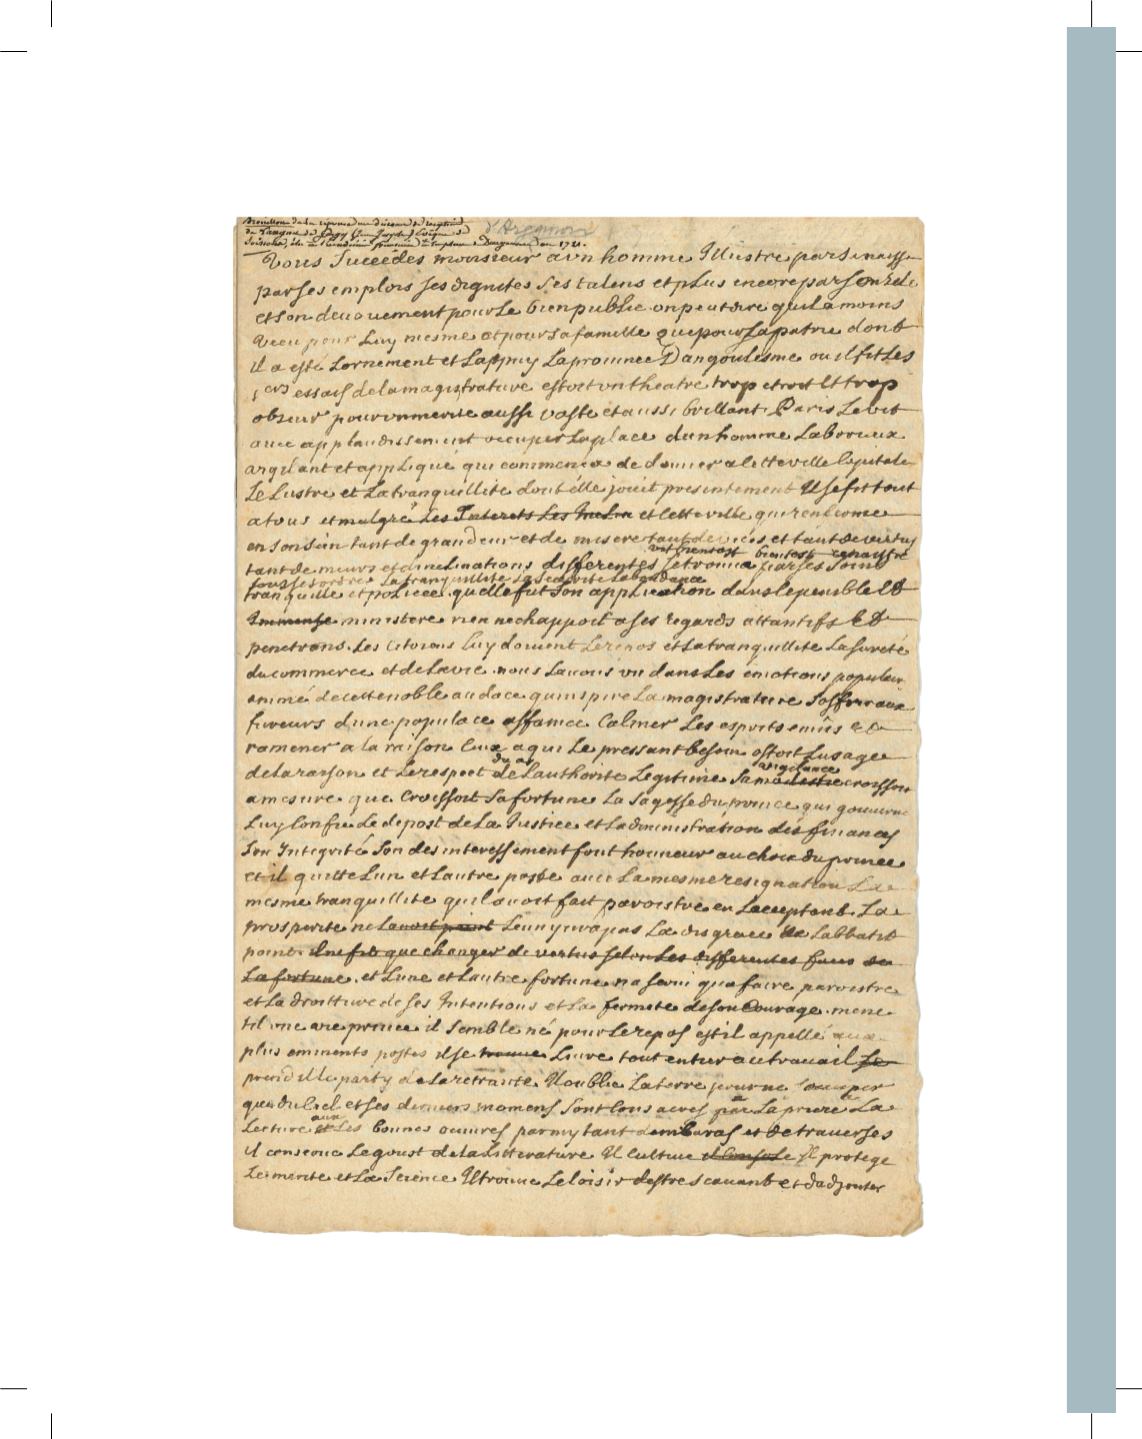 Brouillon de la reponse au discours de reception
de Languet de Gergy (Jean Joseph) Evêque de
Soissons, élu à l'académie françoise en la place d'Argenson en 1721.
d'Argenson
Vous succedés monsieur a vn homme Illustre par sa naiss
par ses emplois ses dignites ses talens et plus encore par son zele
et son deuouement pour le bien public on peut dire quil a moins
vecu pour Luy mesme et pour sa famille que pour sa patrie dont
il a esté Lornement et Lappuy La prouince Dangoulesme ou il fit Les
1ers essais de la magistrature estoit vn theatre trop etroit Et trop
obscur pour vn merite aussi vaste et aussi brillant Paris Le vit
auec applaudissement occuper La place dun homme Laborieux
et appliqué qui commenca de donner a cette ville Capitale
Le Lustre et La tranquillite dont elle jouit presentement Il se fit tout
a tous et malgré Les Interets et cette ville qui renferme
en son sein tant de grandeur et de misere tant de vices et tant de vertus
vit bientost
tant de meurs et dinclinations differentes se trouua par ses soins
La tranquillité La seureté Labondance
tranquille et policée quelle fut son application dans le penible Et
Immense ministere rien nechappoit a ses regards attantifs Et
penetrans. Les Citoiens Luy doiuent Le repos et La tranquillite La sureté
du commerce et de La vie nous Lauons vu dans Les emotions populair
animé de cette noble audace quinspire La magistrature soffrir aux
fureurs dune populace affamée Calmer Les esprits emûs et
ramener a la raison Ceux a qui Le pressant besoin ostoit Lusage
du a vigilance
de La raison et Le respect de Lauthorite Legitime Sa modestie croissoit
a mesure que Croissoit sa fortune La sagesse du prince qui gouuerne
Luy Confie Le depost de La Justice et Ladministration des finances
Son Integrite Son desinteressement font honneur au choix du prince
et il quitte Lun et Lautre poste auec La mesme resignation La
mesme tranquillite quil auoit fait paroistre en Lacceptant. La
prosperite ne Lauoit point Lenyura pas La disgrace ne Labbatit
point. il ne fit que changer de vertus selon Les differentes faces de
La fortune. et Lune et Lautre fortune na serui qua faire paroistre
et La droitture de ses Intentions et La fermeté de son Courage. mene
til vne vie priuée il semble né pour Le repos est il appellé aux
plus eminents postes il se trouue Liure tout entier au trauail
prend il Le party de La retraite Il oublie La terre pour ne soccuper
que du Ciel et ses derniers momens sont Consacrés par La priere La
aux
Lecture et Les bonnes oeuures parmy tant dembaras et de trauerses
il conserue Le goust de La Litterature Il cultiue il Console Il protege
Le merite et La Science Il trouue Le loisir destre scauant et dadjouter